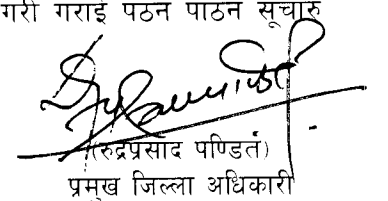 गरी गराई पठन पाठन सूचारु
(रुद्रप्रसाद पण्डित)
प्रमुख जिल्ला अधिकारी